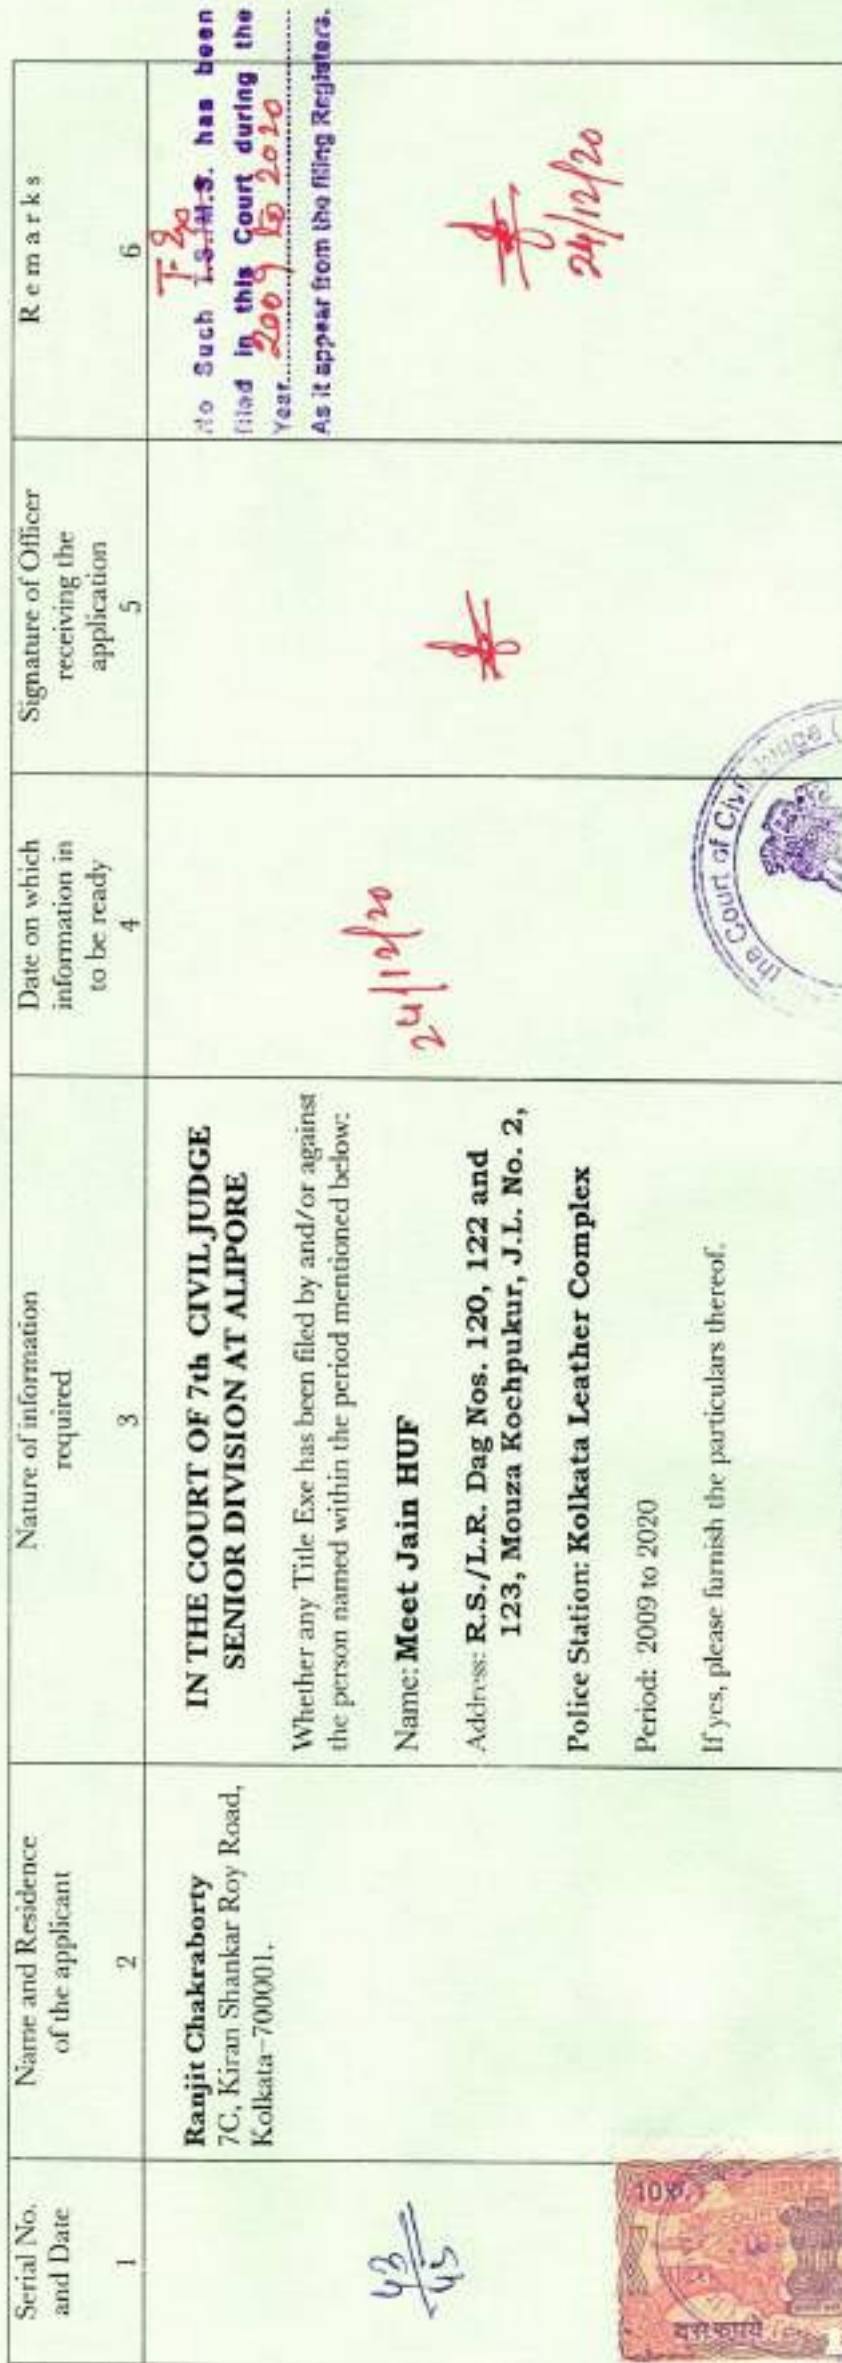 Serial No.
and Date
Name and Residence
of the applicant
Nature of information
required
Date on which
information in
to be ready
Signature of Officer
receiving the
application
Remarks
1
2
3
4
5
6
43/45
Ranjit Chakraborty
7C, Kiran Shankar Roy Road,
Kolkata-700001.
IN THE COURT OF 7th CIVIL JUDGE
SENIOR DIVISION AT ALIPORE
Whether any Title Exe has been filed by and/or against
the person named within the period mentioned below:
Name: Meet Jain HUF
Address: R.S./L.R. Dag Nos. 120, 122 and
123, Mouza Kochpukur, J.L. No. 2,
Police Station: Kolkata Leather Complex
Period: 2009 to 2020
If yes, please furnish the particulars thereof.
24/12/20
T. Ex
No Such T.S./M.S. has been
filed in this Court during the
Year 2009 to 2020
As it appear from the filing Registers.
24/12/20
the Court of Civil Judge (
10रु.
दस रुपये